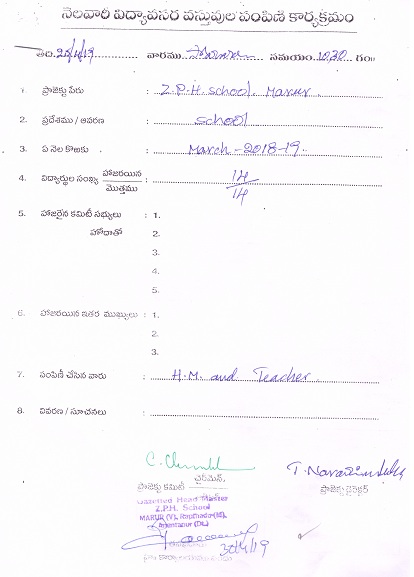 నెలవారీ విద్యావసర వస్తువుల పంపిణి కార్యక్రమం
తేది. వారము సమయం.10.30 గం॥
1. ప్రాజెక్టు పేరు : Z.P.H. school. Marur.
2. ప్రదేశము / ఆవరణ : school
3. ఏ నెల కొఱకు : March - 2018-19.
4. విద్యార్థుల సంఖ్య హాజరయిన / మొత్తము : 14 / 14
5. హాజరైన కమిటీ సభ్యులు : 1.
హోదాతో 2.
3.
4.
5.
6. హాజరయిన ఇతర ముఖ్యులు : 1.
2.
3.
7. పంపిణీ చేసిన వారు : H.M. and Teacher.
8. వివరణ / సూచనలు :
ఛైర్మెన్,
ప్రాజెక్టు కమిటీ
ప్రాజెక్టు డైరెక్టర్
Gazetted Head Master
Z.P.H. School
MARUR (V), Rapthadu(M),
Anantapur (Dt.)
30/4/19